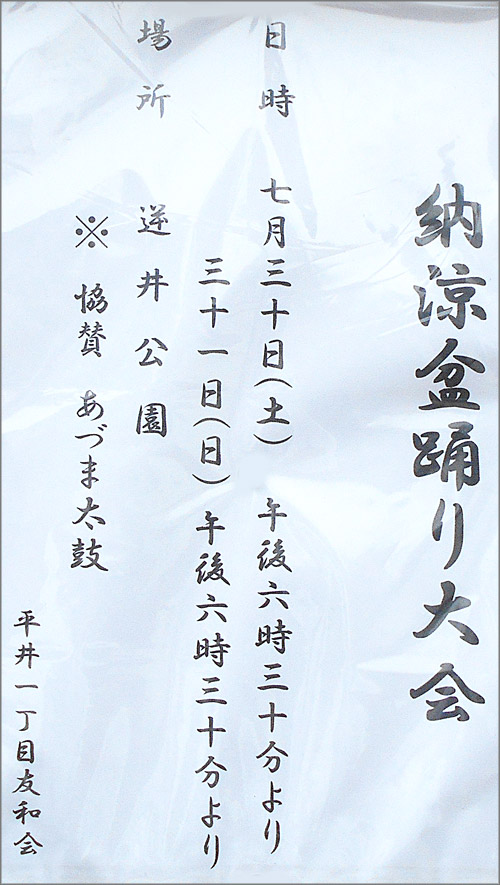 納涼盆踊り大会
日時 七月三十日(土) 午後六時三十分より
三十一日(日) 午後六時三十分より
場所 逆井公園
※ 協賛 あづま太鼓
平井一丁目友和会